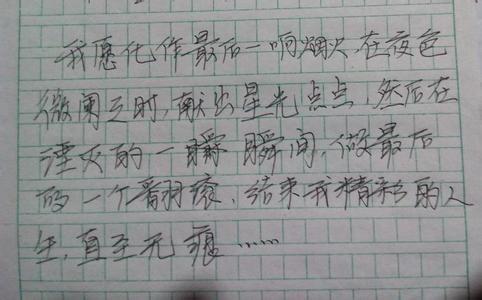 我愿化作最后一响烟火.在夜色
微阑之时,献出星光点点.然后在
湮灭的一瞬瞬间,做最后
的一个翻滚.结束我精彩的人
生,直至无痕……